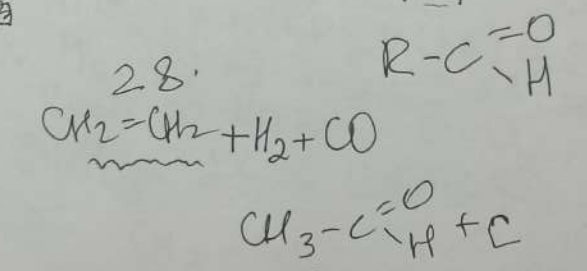 28.
R-C=O
\H
CH2=CH2+H2+CO
CH3-C=O
\H + C